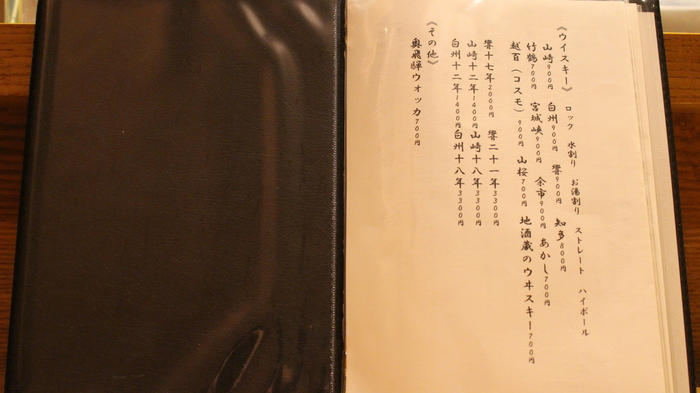 《ウイスキー》 ロック 水割り お湯割り ストレート ハイボール
山崎900円 白州900円 響900円 知多800円
竹鶴700円 宮城峡900円 余市900円 あかし700円
越百(コスモ)900円 山桜700円 地酒蔵のウヰスキー700円
響十七年2000円 響二十一年3300円
山崎十二年1400円 山崎十八年3300円
白州十二年1400円 白州十八年3300円
《その他》
奥飛騨ウオッカ700円